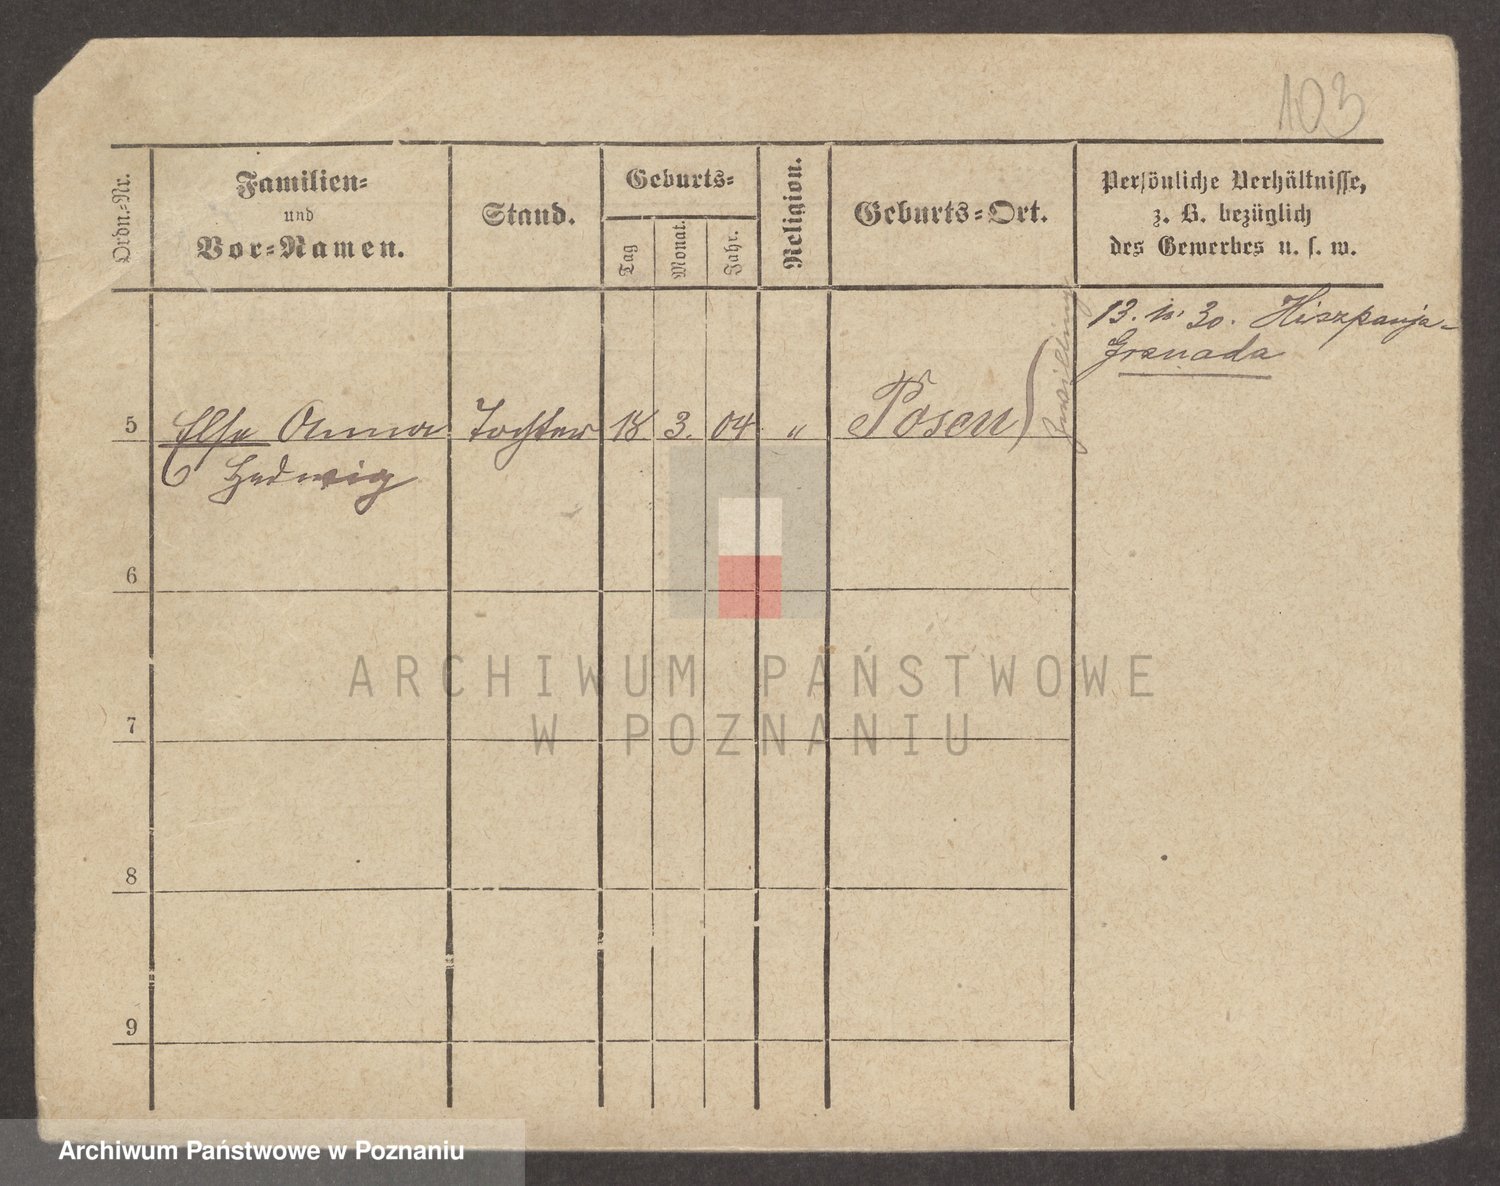 103
Ordn.-Nr.
Familien-
und
Vor-Namen.
Stand.
Geburts-
Tag
Monat.
Jahr.
Religion.
Geburts-Ort.
Persönliche Verhältnisse,
z. B. bezüglich
des Gewerbes u. s. w.
13. 10. 30. Hiszpanja-
Granada
5 Else Anna Tochter 18 3. 04 " Posen
Hedwig
6
7
8
9
ARCHIWUM PAŃSTWOWE
W POZNANIU
Archiwum Państwowe w Poznaniu